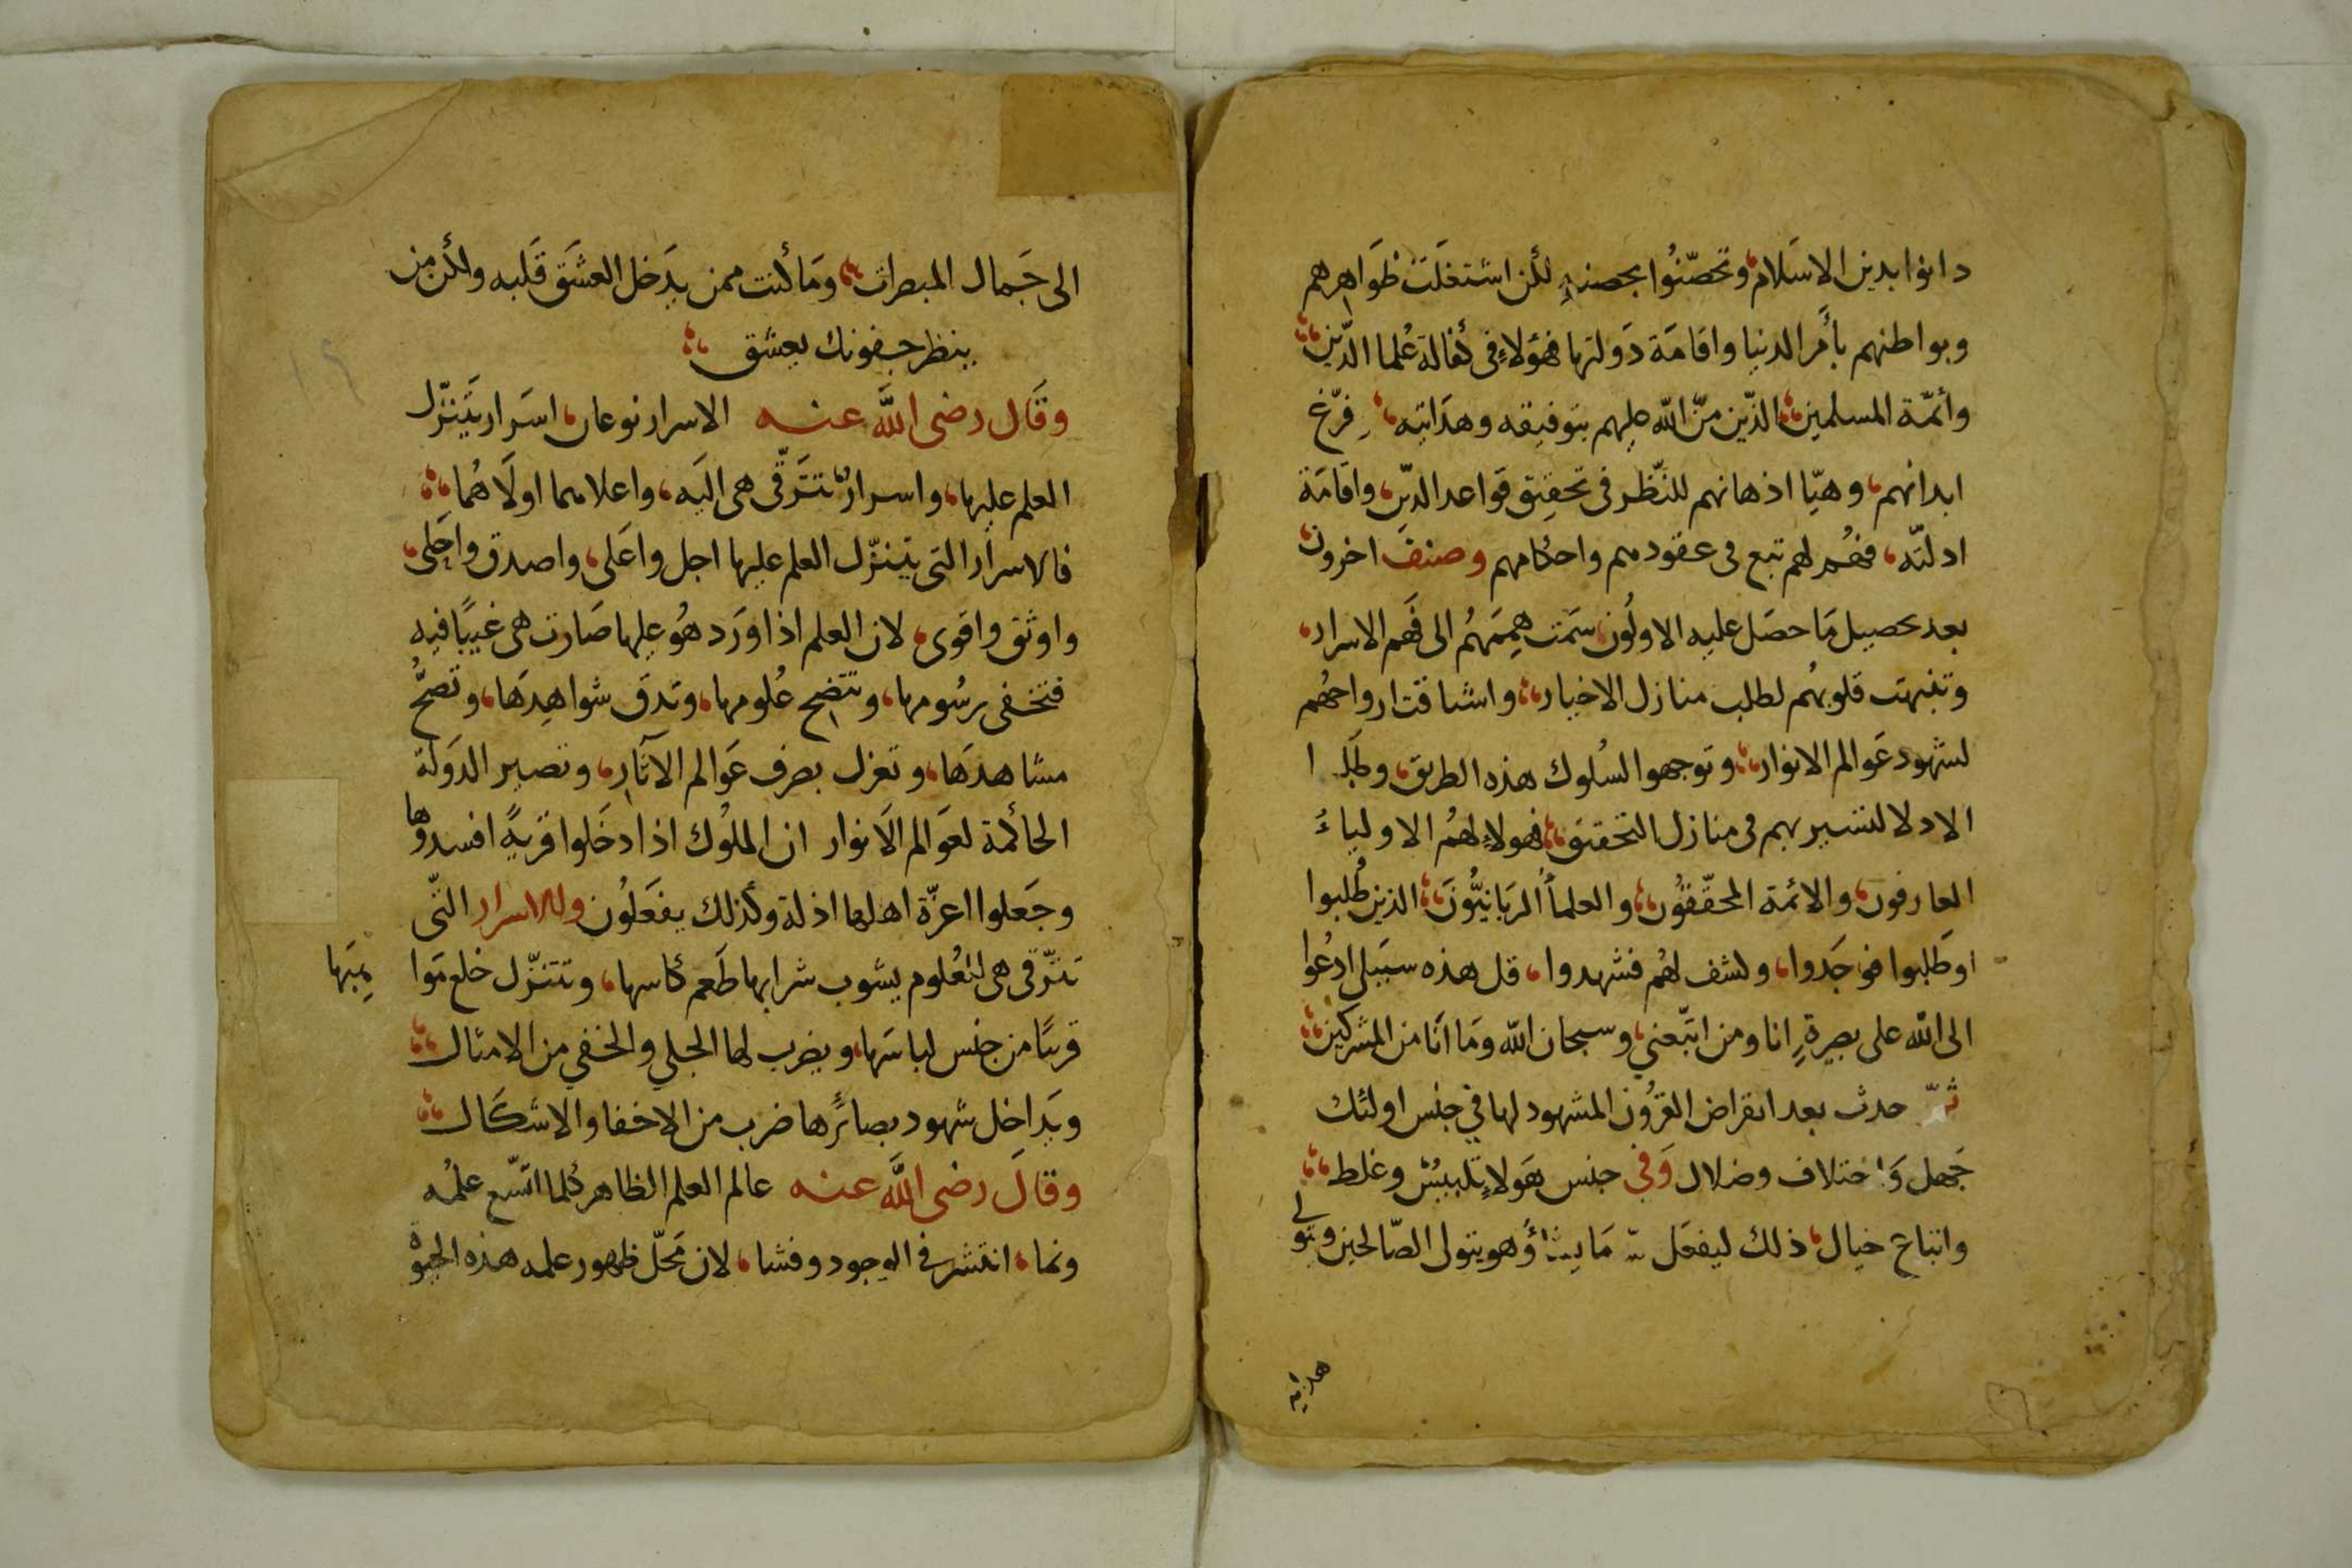 دانوا بدين الاسَلام وتحصّنُوا بحصنهِ لكن اشتغلَت ظوَاهرهم
وبواطنهم بأمَر الدنيا واقامَة دَولتها فهؤلاءِ فى كفالة عُلما الدّين
وأئمّة المسلمين الذّين منّ الله عليهم بتوفيقه وهدَايته فرّغ
ابدانهم وهيّا اذهانهم للنّظر فى تحقيق قواعد الدّين واقامَة
ادلته فهُم لهم تبع فى عقودهم واحكامهم وصنف اخرون
بعد تحصيل مَا حصَل عليه الاولُون سَمت هِمَمهُم الى فَهم الاسرار
وتنبهت قلوبهُم لطلب منازل الاخيار واشتاقت ارواحهُم
لشهود عَوالم الانوار وتوجهوا لسُلوك هذه الطريق وطَلبوا
الادلا لتسير بهم فى منازل التحقيق فهولاءِ هُم الاولياءُ
العارفون والائمة المحقّقوُن والعلمأُ الرَبانيُّونَ الذين طُلبوا
اوطَلبوا فوَجَدوا وكشف لهُم فشهدوا قل هذه سبَيلى ادعُوا
الى الله على بصيرةٍ انا ومن اتبّعني وسبحان الله ومَا انَا من المشركين
ثمّ حدث بعد انقراض القرُون المشهود لها في جنس اولئك
جَهل وَاختلاف وضلال وَفى جنس هَولاءِ تلبيسُ وغلط
واتباع خيال ذلك ليفعَل الله مَا يشاُ وهو يتولى الصّالحين وتولى
هدايه
الى جَمال المبصرات ومَا كنت ممن يدَخل العشَق قَلبه ولكن من
ينظر جفونك يعشق
وقَال رضى اللَّه عنه الاسرار نوعان اسَرار يَتنزّل
العلم عليها واسرارٌ تترَقّى هى اليَه واعلاهما اولَاهُما
فالاسرار التى يتنزّل العلم عليها اجل واعَلى واصدق واجَلى
واوثق واقوى لان العلم اذا ورَد هُو عليها صَارت هى غَيبًا فيه
فتخفى رسُومها وتتضح عُلومها وتدق شواهِدَها وتصحُّ
مشاهدَها وتعزل بصرف عَوالم الآثار وتصير الدَولة
الحاكمة لعَوالم الاَنوار ان الملُوك اذا دخَلوا قريةً افسدوها
وجَعلوا اعزّة اهلها اذلة وكذلك يفعَلُون وللاسرار التّى
تترّقى هى للعُلوم يشوب شرابها طَعم كاسها وتتنزّل خلع مَوا
هِبَها
قربًا من جنس لباسَها ويضرب لها الجلي والخفي من الامثال
ويدَاخِل شهود بصائرُها ضرب من الاخفا والاشكَال
وقالَ رضى اللَّه عنه عالم العلم الظاهر كُلما اتسّع علمُه
ونما انتشر فى الوجود وفشا لان مَحَلّ ظهور علمه هذه الحيوة